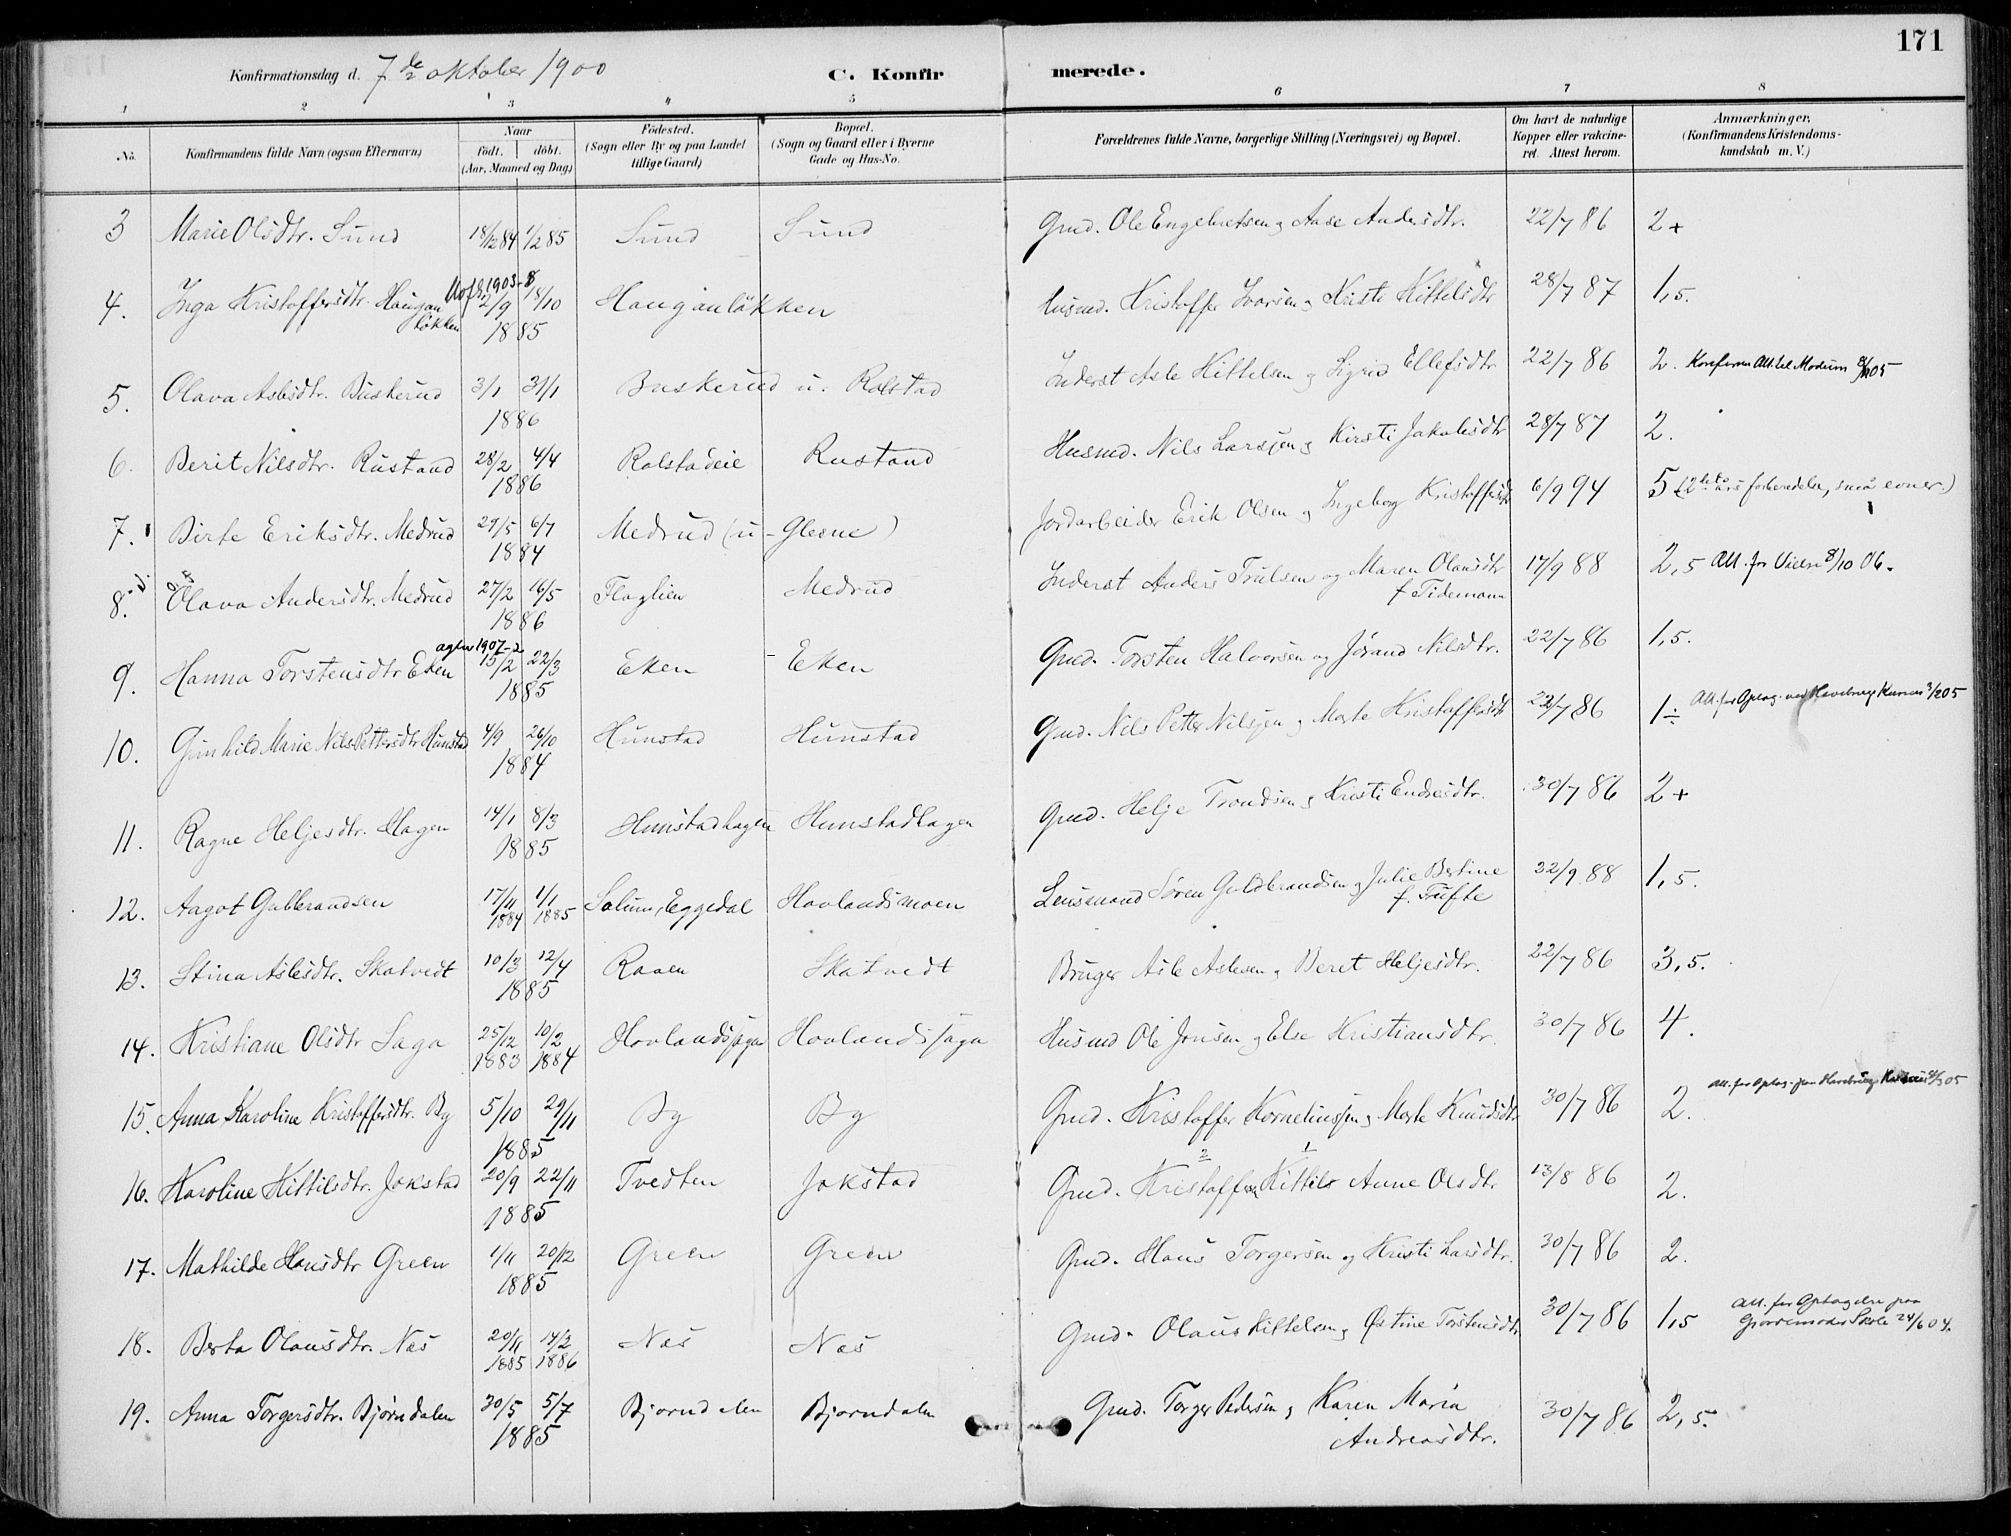 171
Konfirmationsdag d. 7de oktober 1900 C. Konfirmerede.
1 2 3 4 5 6 7 8
No. Konfirmandens fulde Navn (ogsaa Efternavn) Naar født. døbt. (Aar, Maaned og Dag) Fødested. (Sogn eller By og paa Landet tillige Gaard) Bopæl. (Sogn og Gaard eller i Byerne Gade og Hus-No. Forældrenes fulde Navne, borgerlige Stilling (Næringsvei) og Bopæl. Om havt de naturlige Kopper eller vakcineret. Attest herom. Anmærkninger. (Konfirmandens Kristendomskundskab m. V.)
3 Marie Olsdtr. Sund 18/12 84 1/2 85 Sund Sund Gmd. Ole Engebretsen og Aase Andersdtr. 22/7 86 2+
4. Inga Kristoffersdtr. Haugan løkken 2/9 18/10 1885 Hauganløkken Husmd. Kristoffer Ivarsen og Kristi Kittelsdtr 28/7 87 1,5.
5. Olava Aslesdtr. Buskerud 3/1 31/1 1886 Buskerud u. Rolstad Inderst Asle Kittelsen og Sigrid Ellefsdtr 22/7 86 2. Konfirm Att. til Modum 05
6. Berit Nilsdtr. Rustand 28/2 4/4 1886 Rolstadeie Rustand Husmd. Nils Larsen og Kirsti Jakobsdtr 28/7 87 2.
7. Birte Eriksdtr. Medrud 29/5 6/7 1884 Medrud (u. Glesne) Jordarbeider Erik Olsen og Ingeborg Kristoffersdtr 6/9 94 5 (2 års forberedelse, små evner.)
8. Olava Andersdtr. Medrud 27/2 16/5 1886 Flaglien Medrud Inderst Anders Trulsen og Maren Olausdtr f Tidemann 17/9 88 2,5 Att. for Vielse 8/10 06.
9. Hanna Torstensdtr Eken 15/2 22/3 1885 Eken Eken Gmd. Torsten Halvorsen og Jørand Nilsdtr. 22/7 86 1,5.
10. Gunhild Marie Nils Pettersdtr Hunstad 4/9 26/10 1884 Hunstad Hunstad Gmd. Nils Petter Nilsen og Marte Kristoffersdtr 22/7 86 1÷ Att. for Optag. ved Havebrugs Kursus 3/2 05
11. Ragne Heljesdtr. Hagen 14/1 8/3 1885 Hunstadhagen Hunstadhagen Gmd. Helje Trondsen og Kristi Endresdtr. 30/7 86 2+
12. Aagot Gulbrandsen 17/11 1884 1/1 1885 Solum, Eggedal Hovlandsmoen Lensmand Søren Guldbrandsen og Julie Bertine f. Tufte 22/9 88 1,5.
13. Stina Aslesdtr. Skatvedt 10/3 12/4 1885 Raaen Skatvedt Bruger Asle Aslesen og Beret Heljesdtr. 22/7 86 3,5.
14. Kristiane Olsdtr Saga 25/12 1883 10/2 1884 Hovlandsjaga Hovlandsjaga Husmd Ole Jonsen og Else Kristiansdtr. 30/7 86 4.
15. Anna Karoline Kristoffersdtr. By 5/10 29/11 1885 By By Gmd. Kristoffer Korneliussen og Marte Knudsdtr 30/7 86 2. Att. for Optag. paa Havebrugs Kursus 05
16. Karoline Kittilsdtr. Jokstad 20/9 22/11 1885 Tvedten Jokstad Gmd. Kristoffersen Kittil og Anne Olsdtr. 13/8 86 2.
17. Mathilde Hansdtr Green 1/11 20/12 1885 Green Green Gmd. Hans Torgersen og Kristi Larsdtr. 30/7 86 2.
18. Berta Olausdtr. Næs 20/11 1885 14/2 1886 Næs Næs Gmd. Olaus Kittelsen og Østine Torstensdtr. 30/7 86 1,5 Att. for Optagelse paa Gjordemoder Skole 24/6 04.
19. Anna Torgersdtr. Bjørndalen 30/5 5/7 1885 Bjørndalen Bjørndalen Gmd. Torger Pedersen og Karen Maria Andreasdtr. 30/7 86 2,5.